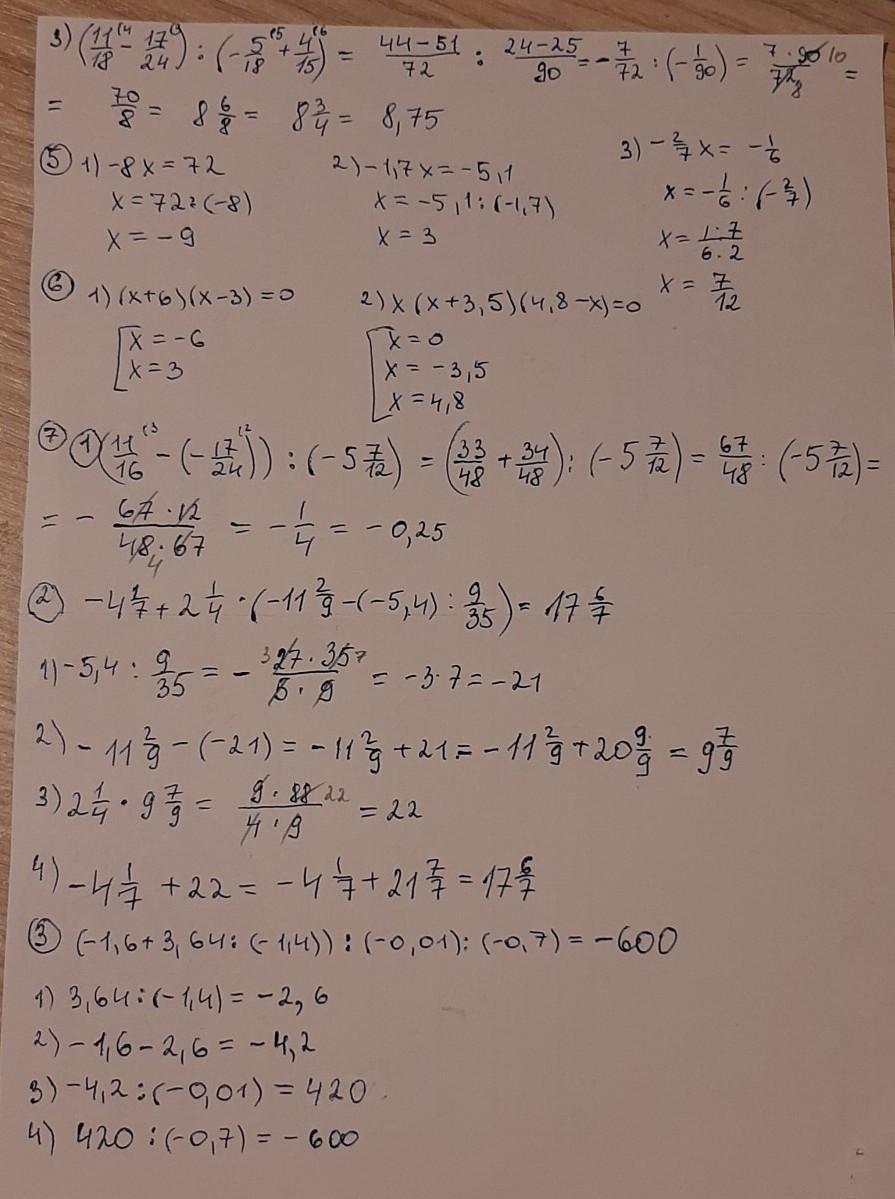 3) (11/18 - 17/24) : (-5/18 + 4/15) = 44-51/72 : 24-25/90 = -7/72 : (-1/90) = 7·90/72 =
= 70/8 = 8 6/8 = 8 3/4 = 8,75
⑤ 1) -8x = 72
x = 72 : (-8)
x = -9
2) -1,7x = -5,1
x = -5,1 : (-1,7)
x = 3
3) -2/7 x = -1/6
x = -1/6 : (-2/7)
x = 1·7/6·2
x = 7/12
⑥ 1) (x+6)(x-3) = 0
[x = -6
x = 3
2) x(x+3,5)(4,8-x) = 0
[x = 0
x = -3,5
x = 4,8
⑦ ① (11/16 - (-17/24)) : (-5 7/12) = (33/48 + 34/48) : (-5 7/12) = 67/48 : (-5 7/12) =
= - 67·12/48·67 = -1/4 = -0,25
② -4 1/7 + 2 1/4 · (-11 2/9 - (-5,4) : 9/35) = 17 6/7
1) -5,4 : 9/35 = - 27·35/5·9 = -3·7 = -21
2) -11 2/9 - (-21) = -11 2/9 + 21 = -11 2/9 + 20 9/9 = 9 7/9
3) 2 1/4 · 9 7/9 = 9·88/4·9 = 22
4) -4 1/7 + 22 = -4 1/7 + 21 7/7 = 17 6/7
③ (-1,6 + 3,64 : (-1,4)) : (-0,01) : (-0,7) = -600
1) 3,64 : (-1,4) = -2,6
2) -1,6 - 2,6 = -4,2
3) -4,2 : (-0,01) = 420
4) 420 : (-0,7) = -600